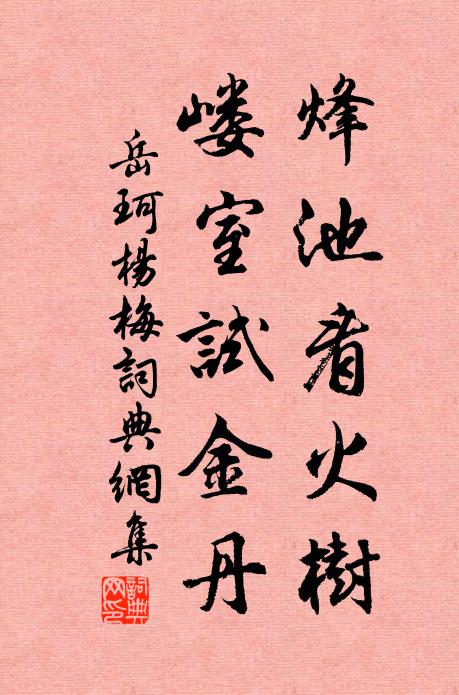 烽池看火樹
嶁室試金丹
岳珂楊梅詞典網集
詞典網印